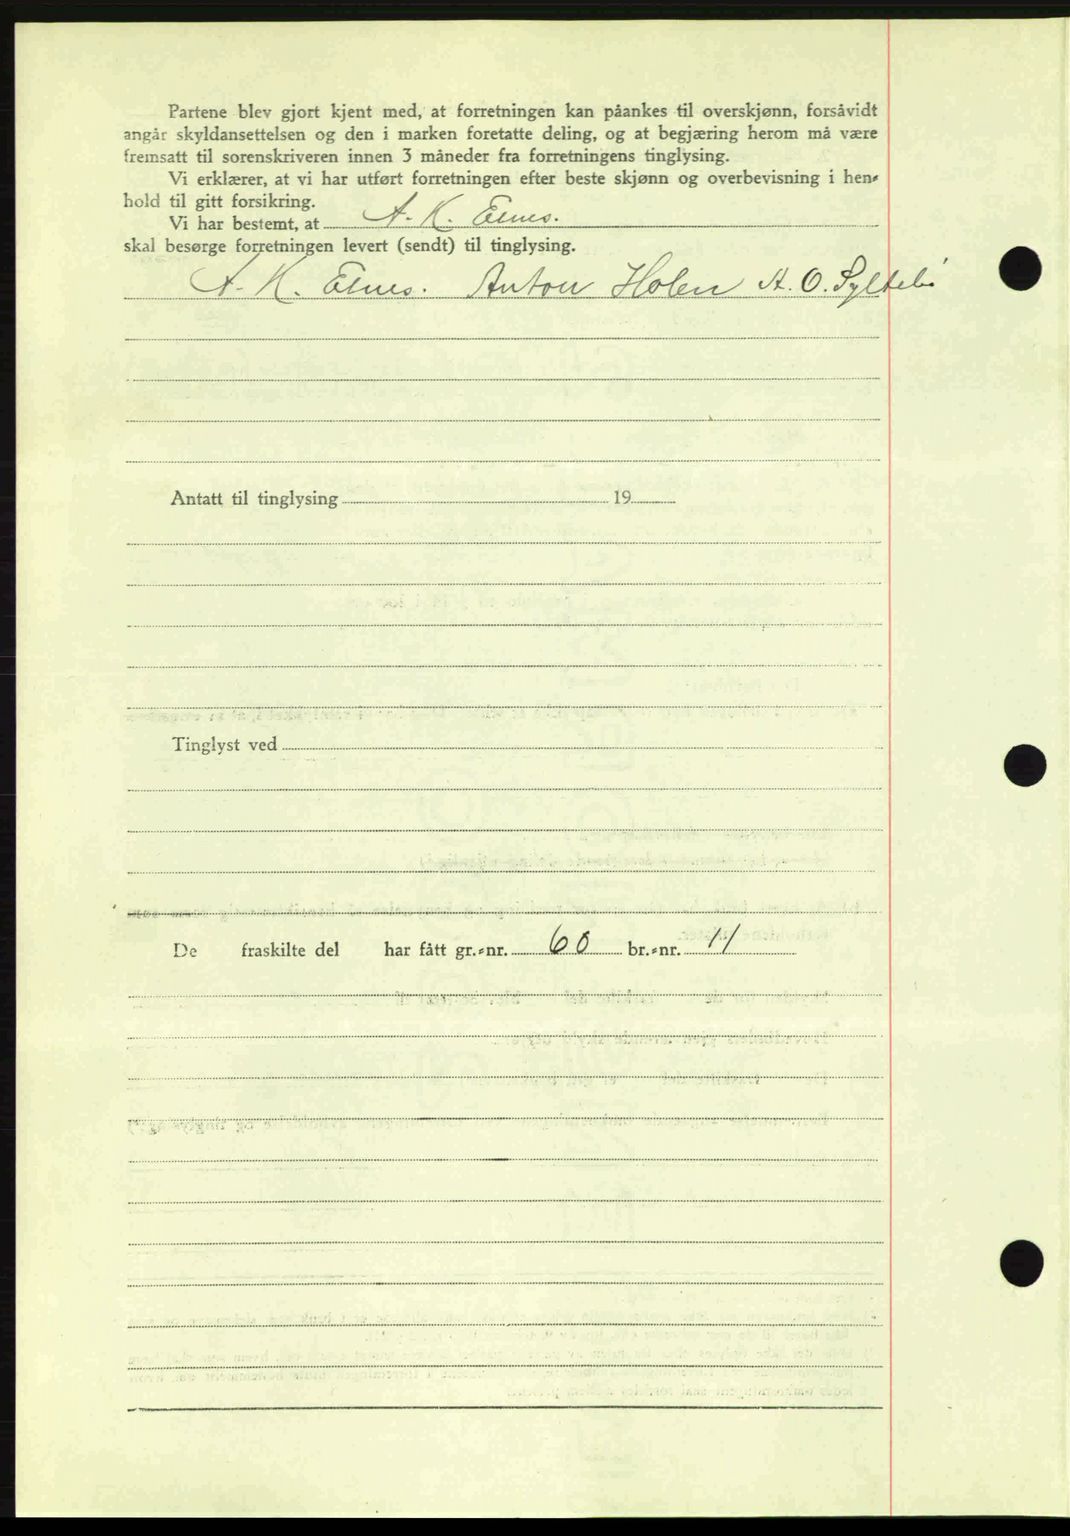 Partene blev gjort kjent med, at forretningen kan påankes til overskjønn, forsåvidt
angår skyldansettelsen og den i marken foretatte deling, og at begjæring herom må være
fremsatt til sorenskriveren innen 3 måneder fra forretningens tinglysing.
Vi erklærer, at vi har utført forretningen efter beste skjønn og overbevisning i hen-
hold til gitt forsikring.
Vi har bestemt, at A. K. Elnes.
skal besørge forretningen levert (sendt) til tinglysing.
A. K. Elnes. Anton Holen A. O. Syltebø
Antatt til tinglysing 19
Tinglyst ved
De fraskilte del har fått gr.-nr. 60 br.-nr. 11